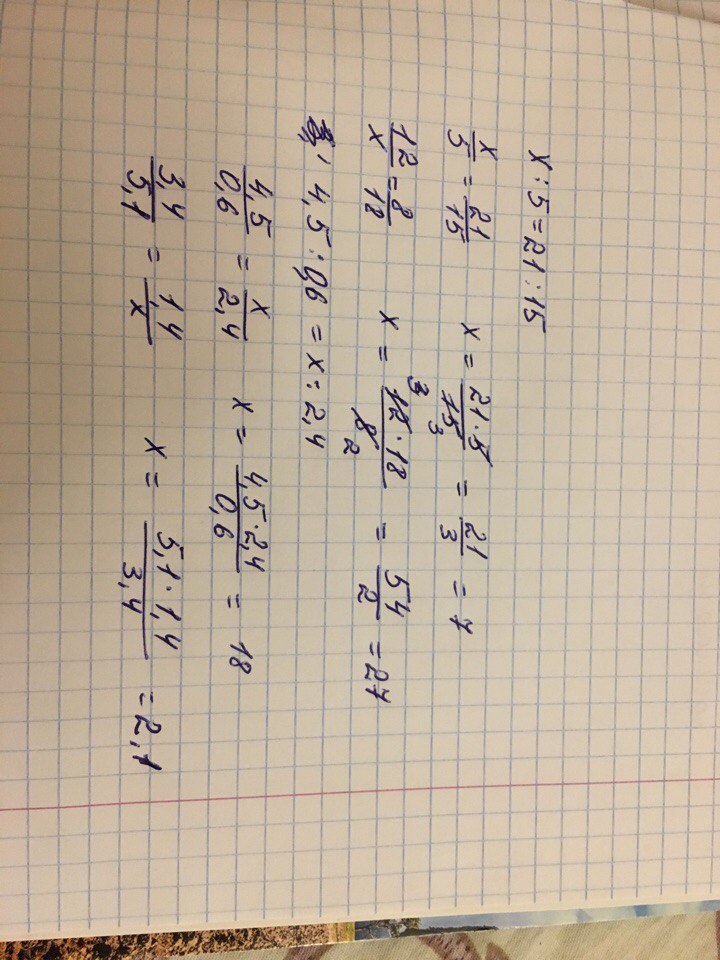 x : 5 = 21 : 15
x/5 = 21/15   x = 21·5/15 3 = 21/3 = 7
12/x = 8/18   x = 3 12·18/8 2 = 54/2 = 27
4,5 : 0,6 = x : 2,4
4,5/0,6 = x/2,4   x = 4,5·2,4/0,6 = 18
3,4/5,1 = 1,4/x   x = 5,1·1,4/3,4 = 2,1